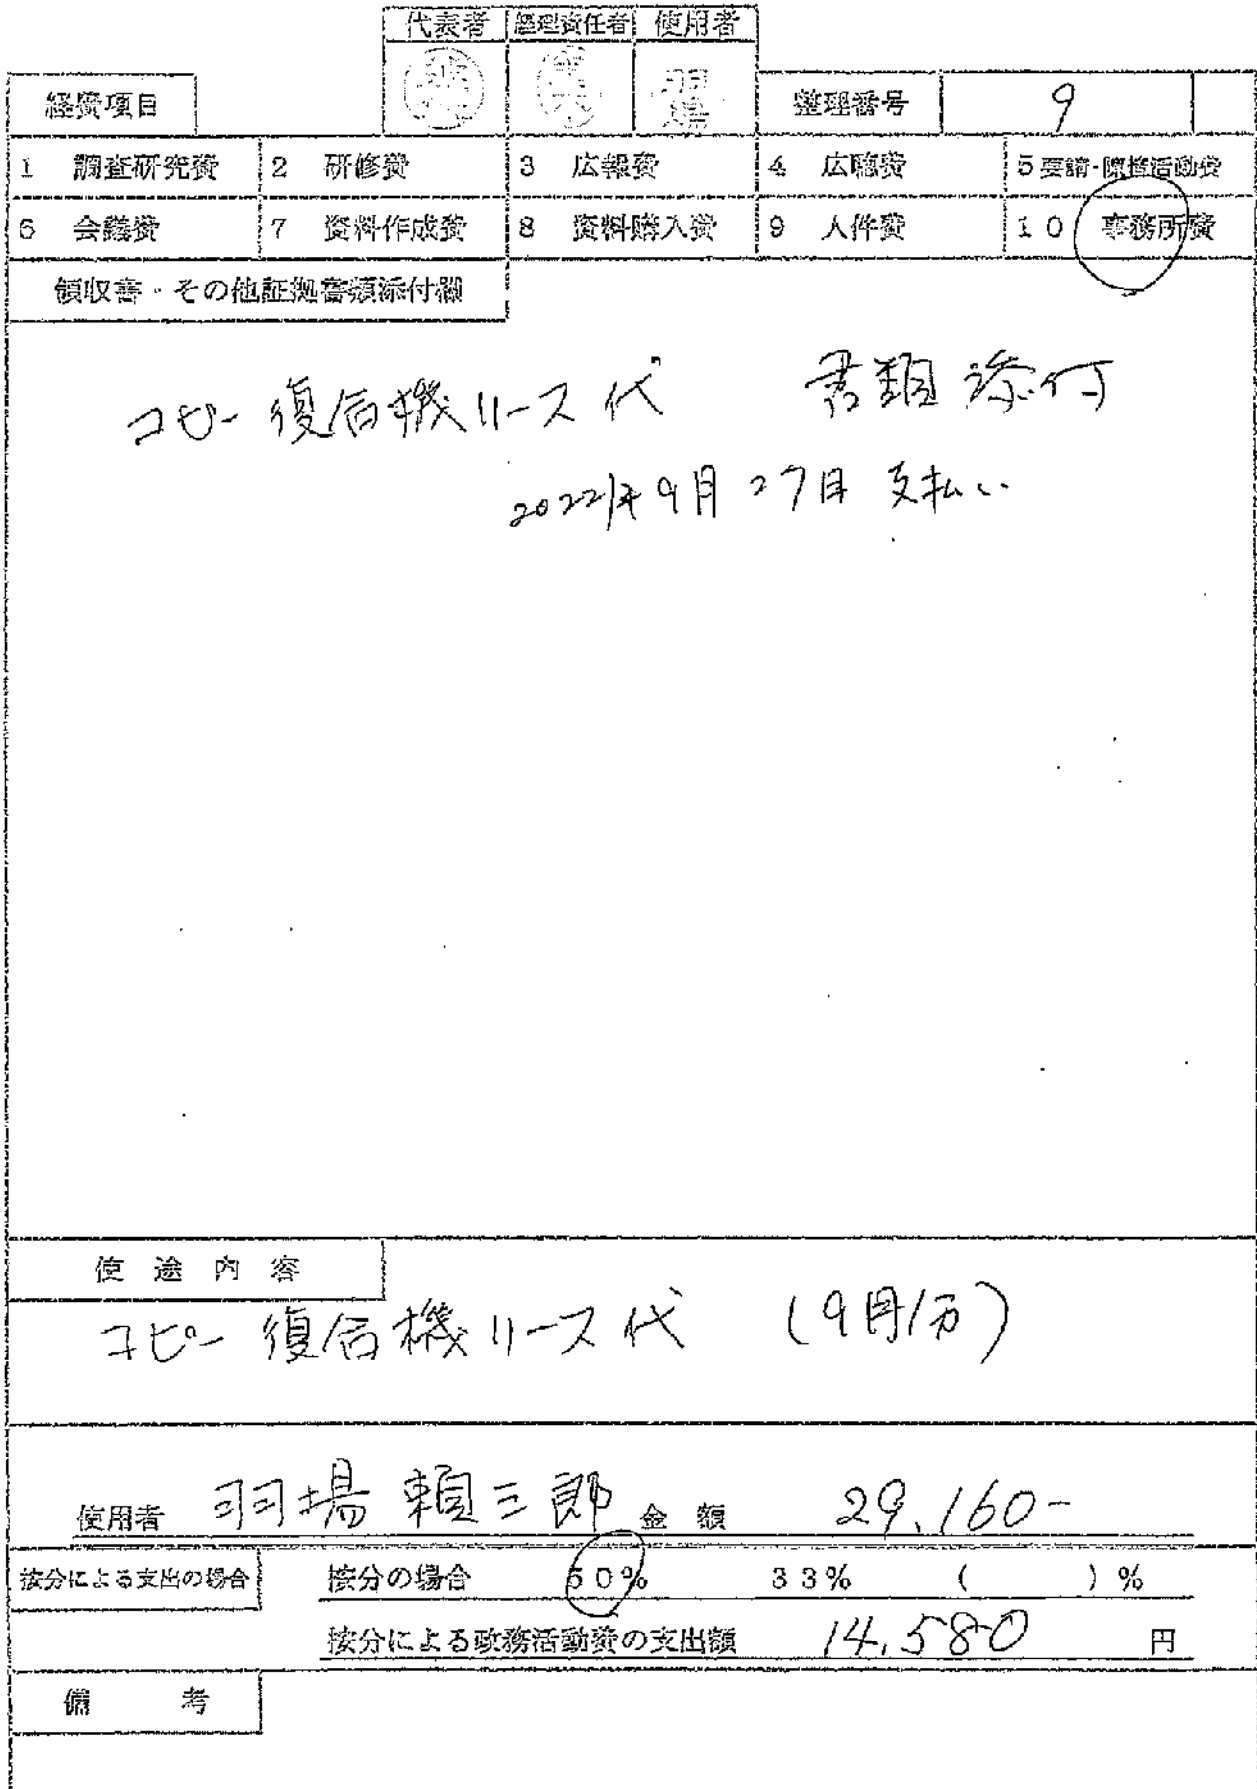 代表者 経理責任者 使用者
羽場
経費項目 整理番号 9
1 調査研究費 2 研修費 3 広報費 4 広聴費 5 要請・陳情活動費
6 会議費 7 資料作成費 8 資料購入費 9 人件費 10 事務所費
領収書・その他証拠書類添付欄
コピー復合機リース代 書類添付
2022年9月27日 支払い
使途内容
コピー復合機リース代 (9月分)
使用者 羽場頼三郎 金額 29,160-
按分による支出の場合 按分の場合 50% 33% ( )%
按分による政務活動費の支出額 14,580 円
備考